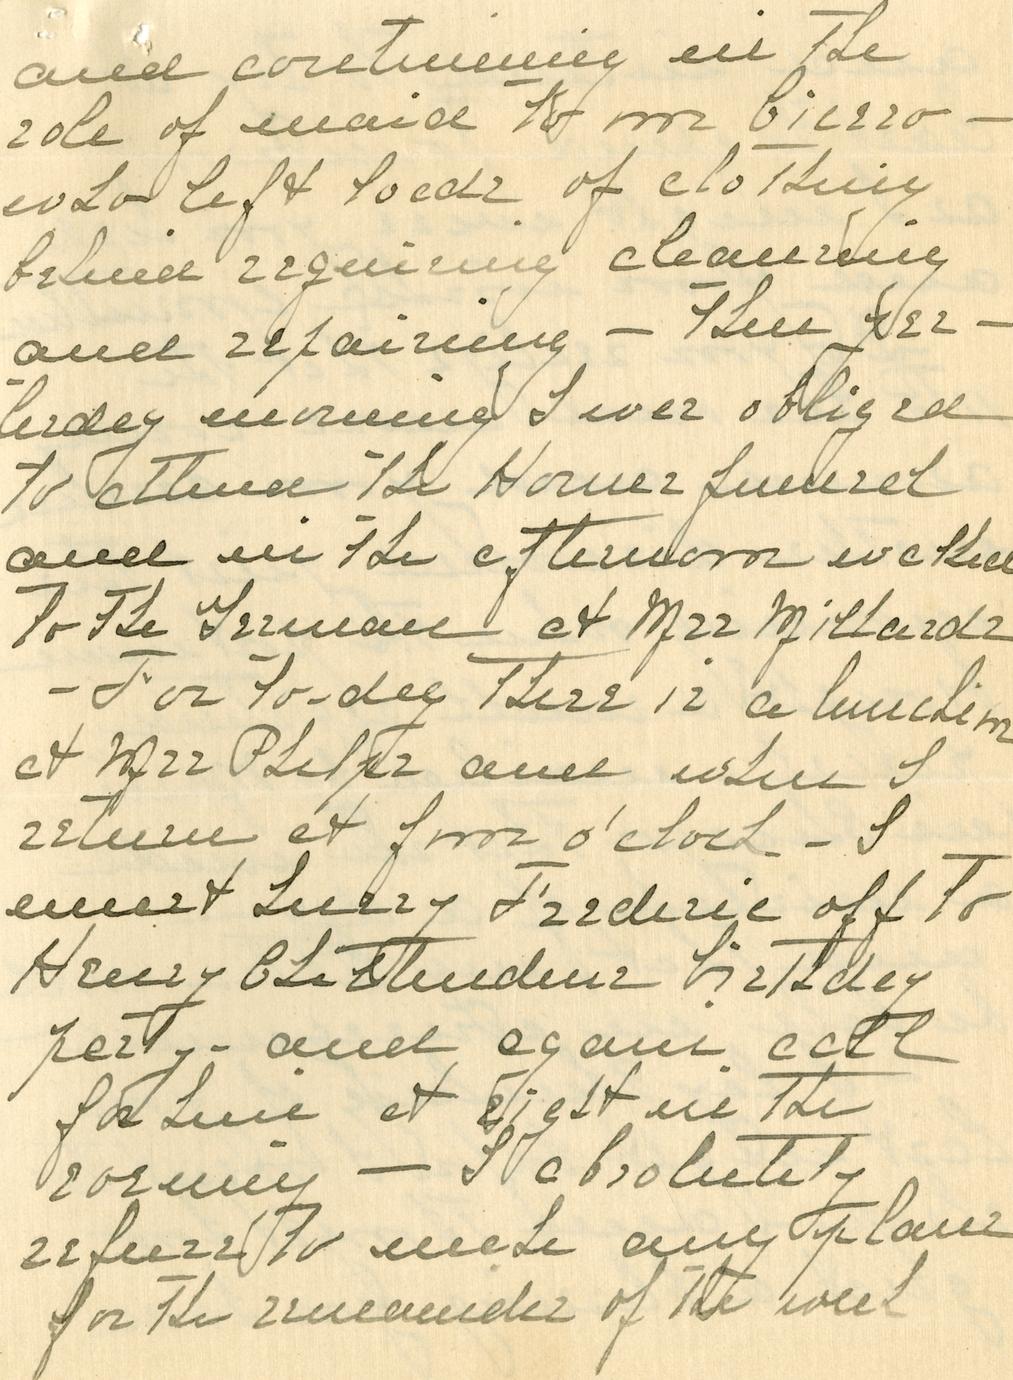 and continuing in the
role of maid to our Cierro -
who left loads of clothing
behind requiring cleaning
and repairing - Then yes -
terday morning I was obliged
to attend the Horner funeral
and in the afternoon walked
to the German at Mrs Millards
- For to-day there is a luncheon
at Mrs Phelps and when I
return at four o'clock - I
must hurry Frederic off to
Henry Chittendens birthday
party - and again call
for him at eight in the
evening - I absolutely
refuse to make any plans
for the remainder of the week